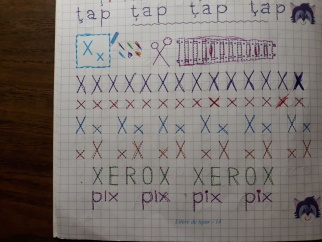 țap țap țap țap
X x
X X X X X X X X X X X X X X X X
x x x x x x x x x x x x x x x x
X x X x X x X x X x X x
x X x X x X x X x X x X
XEROX XEROX
pix pix pix pix